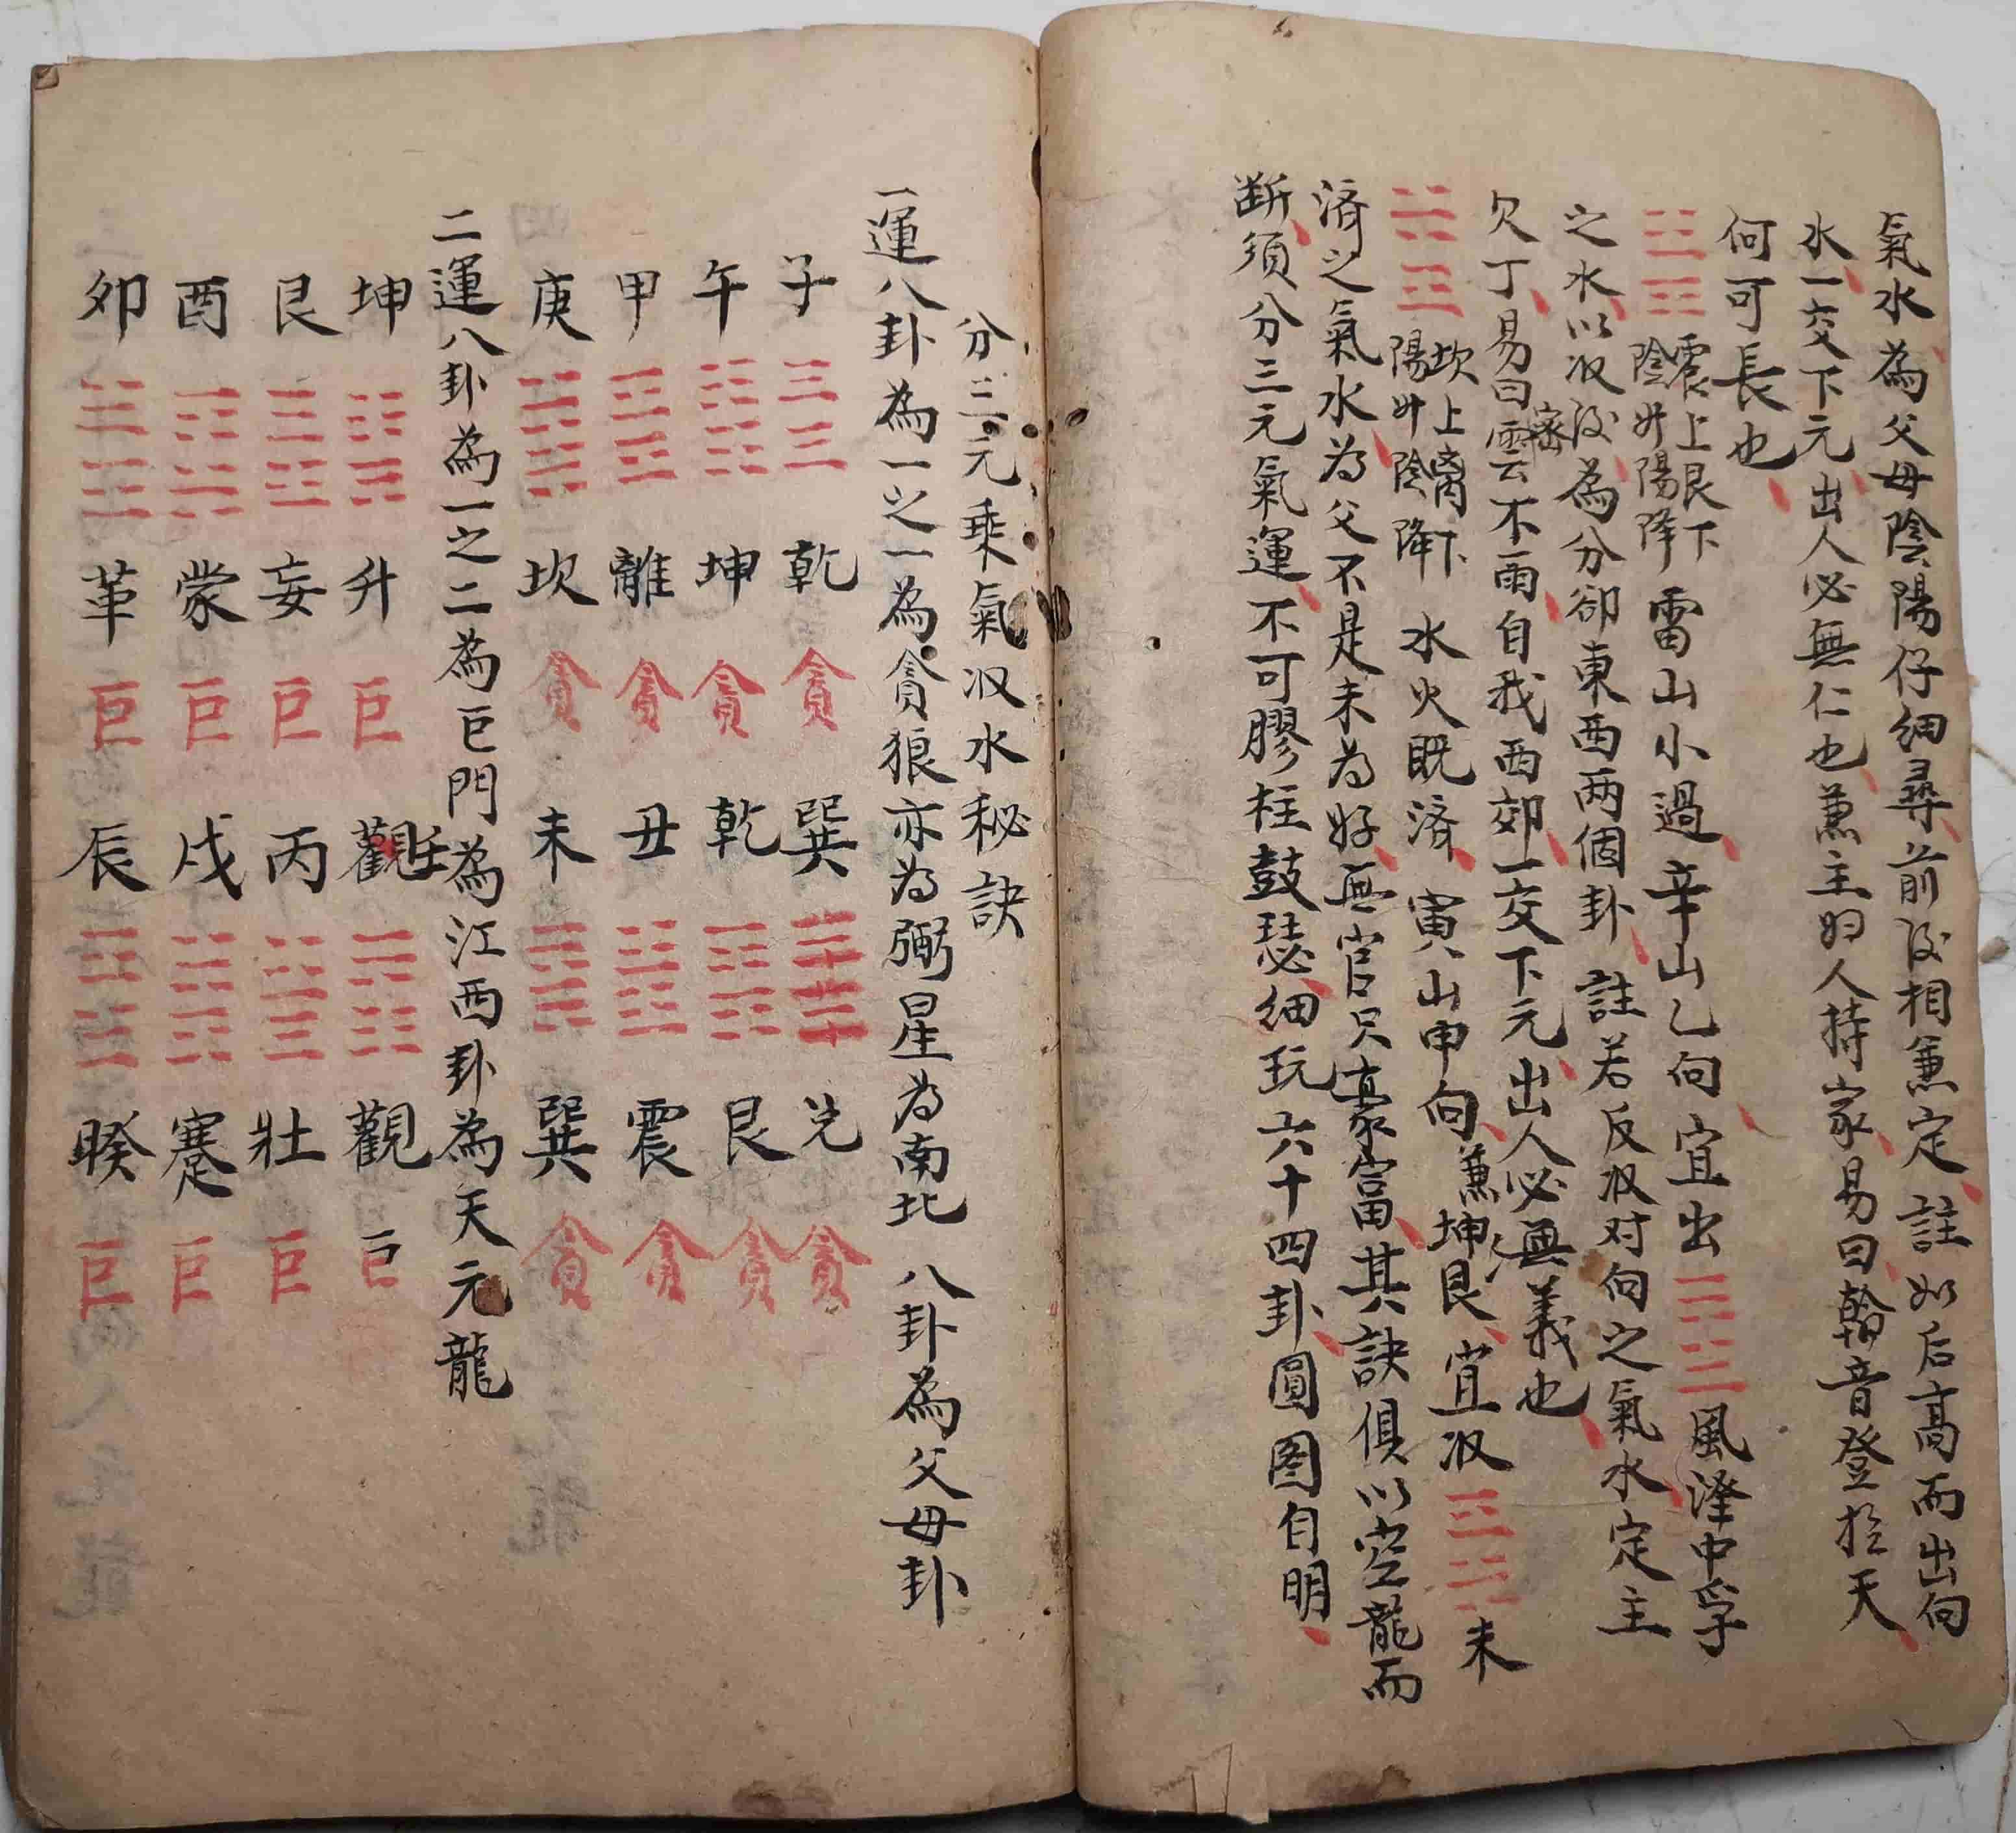 氣水為父母陰陽仔細尋前後相兼定註如后高而出向
水一交下元出人必無仁也兼主妇人持家易曰翰音登於天
何可長也
震上艮下
陰升陽降
雷山小過辛山乙向宜出
風澤中孚
之水以収後為分卻東西两個卦註若反収对向之氣水定主
欠丁易曰密雲不雨自我西郊一交下元出人必無義也
坎上離下
陽升陰降
水火既済寅山申向兼坤艮宜収
未
済之氣水為父不是未為好無官只豪富其訣俱以空龍而
断須分三元氣運不可膠柱鼓瑟細玩六十四卦圓图自明
分三元乘氣収水秘訣
一運八卦為一之一為貪狼亦為弼星為南北八卦為父母卦
子 乾 貪 巽 兑 貪
午 坤 貪 乾 艮 貪
甲 離 貪 丑 震 貪
庚 坎 貪 未 巽 貪
二運八卦為一之二為巨門為江西卦為天元龍
坤 升 巨 觀壬 觀 巨
艮 妄 巨 丙 壯 巨
酉 蒙 巨 戌 蹇 巨
卯 革 巨 辰 睽 巨